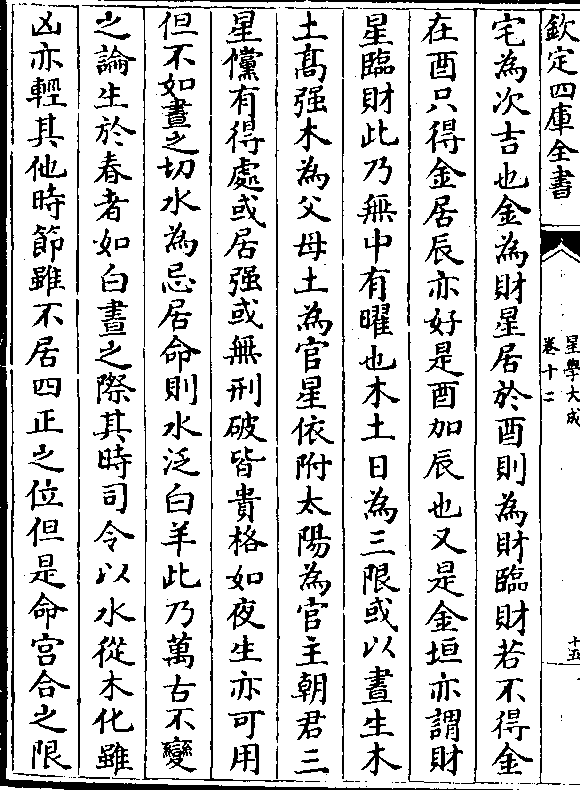 欽定四庫全書
星學大成
卷十二
十五
宅為次吉也金為財星居於酉則為財臨財若不得金
在酉只得金居辰亦好是酉加辰也又是金垣亦謂財
星臨財此乃無中有曜也木土日為三限或以晝生木
土髙强木為父母土為官星依附太陽為官主朝君三
星儻有得處或居强或無刑破皆貴格如夜生亦可用
但不如晝之切水為忌居命則水泛白羊此乃萬古不變
之論生於春者如白晝之際其時司令以水從木化雖
凶亦輕其他時節雖不居四正之位但是命宫合之限